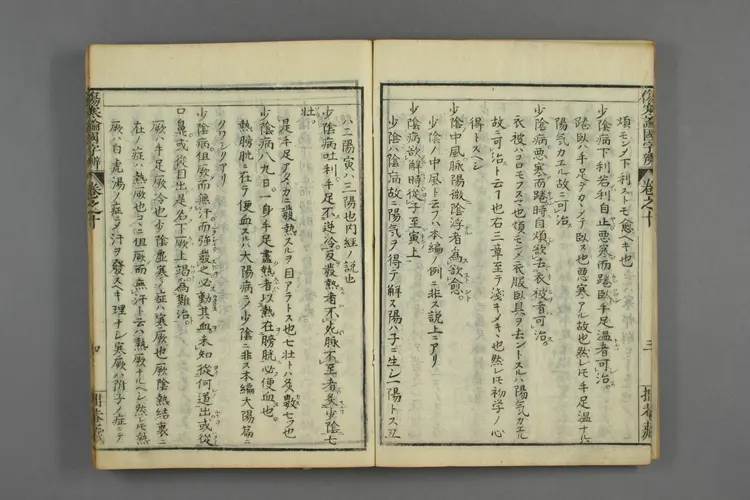 煩モンノ下利ストモ愈ヘキ也
少陰病下利若利自止悪寒而踡臥手足温者可治
踡臥ハ手足チヂカメテ臥ス也悪寒アル故也然レモ手足温ナルハ
陽気カエル故ニ可治
少陰病悪寒而踡時自煩欲去衣被者可治
衣被ハコモフスマ也煩モンメ衣服臥具ヲ去ントスルハ陽気カエル
故ニ可治ト云フ也右三章至テ浅キメキ也然レモ初学ノ心
得トスヘシ
少陰中風脈陽微陰浮者為欲愈
少陰ノ中風ト云フハ本編ノ例ニ非ス説上ニアリ
少陰病欲解時從子至寅上
少陰ハ陰病故ニ陽気ヲ得テ解ス陽ハ子ニ生シ一陽トス丑
傷寒論國字辨 巻之十
三
ハ二陽寅ハ三陽也内經ノ説也
少陰病吐利手足不逆冷反發熱者不死脈不至者灸少陰七
壮
是手足アタヽカニ發熱スルヲ目アラトス也七壮トハ灸數七ツ也
少陰病八九日一身手足盡熱者以熱在膀胱必便血也
熱膀胱ニ在テ便血スルハ大陽病ニノ少陰ニ非ス本編大陽篇ニ
クワシクアリ
少陰病但厥而無汗而強發之必動其血未知從何道出或從
口鼻或從目出是名下厥上竭為難治
厥ハ手足厥冷也少陰虚寒ノ症ハ寒厥也厥陰熱結裏ニ
在ノ症ハ熱厥也コヽニ但厥而無汗ト云ハ熱厥ナルヘシ然レモ熱
厥ハ白虎湯ノ症ニメ汗ヲ發スヘキ理ナシ寒厥ハ附子ノ症ニテ
傷寒論國字辨 巻之十